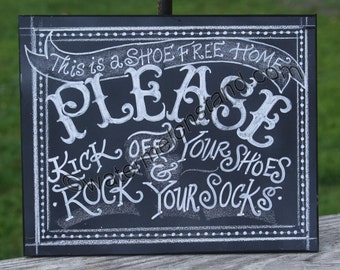 This is a SHOE FREE HOME
PLEASE
KICK OFF YOUR SHOES
& 
ROCK YOUR SOCKS